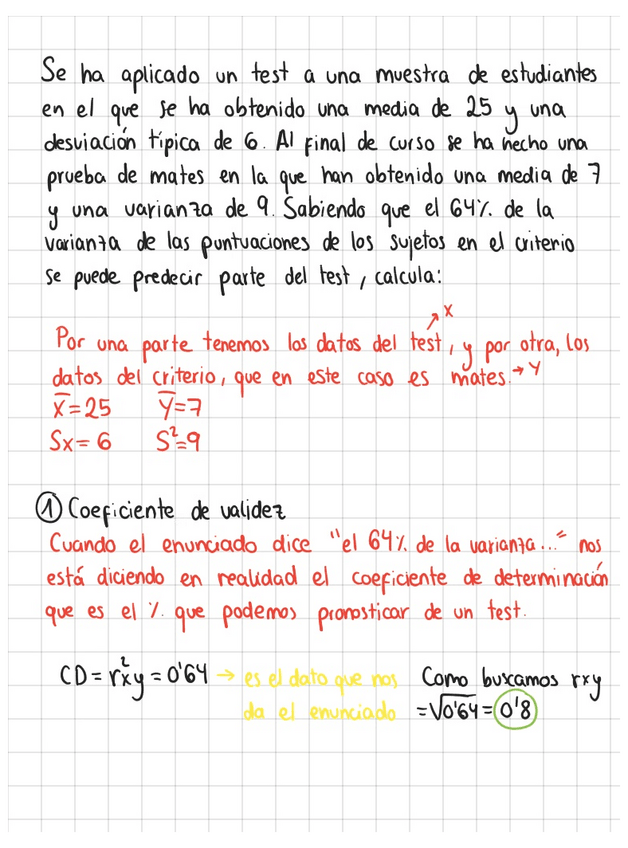 Se ha aplicado un test a una muestra de estudiantes
en el que se ha obtenido una media de 25 y una
desviación típica de 6. Al final de curso se ha hecho una
prueba de mates en la que han obtenido una media de 7
y una varianza de 9. Sabiendo que el 64% de la
varianza de las puntuaciones de los sujetos en el criterio
se puede predecir parte del test, calcula:
X
Por una parte tenemos los datos del test, y por otra, los
datos del criterio, que en este caso es mates. → Y
X̅ = 25 Y̅ = 7
Sx = 6 S² = 9
① Coeficiente de validez
Cuando el enunciado dice "el 64% de la varianza..." nos
está diciendo en realidad el coeficiente de determinación
que es el % que podemos pronosticar de un test.
CD = r²xy = 0'64 → es el dato que nos
da el enunciado
Como buscamos rxy
= √0'64 = 0'8